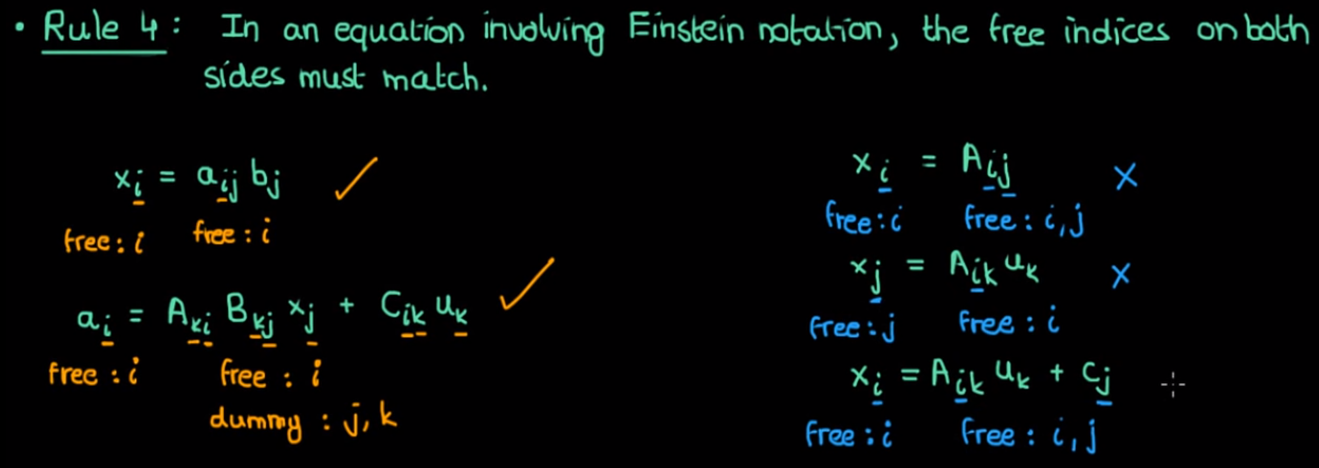 • Rule 4 : In an equation involving Einstein notation, the free indices on both
sides must match.
x_i = a_ij b_j ✓
free : i free : i
a_i = A_ki B_kj x_j + C_ik u_k ✓
free : i free : i
dummy : j, k
x_i = A_ij ×
free : i free : i, j
x_j = A_ik u_k ×
free : j free : i
x_i = A_ik u_k + c_j
free : i free : i, j